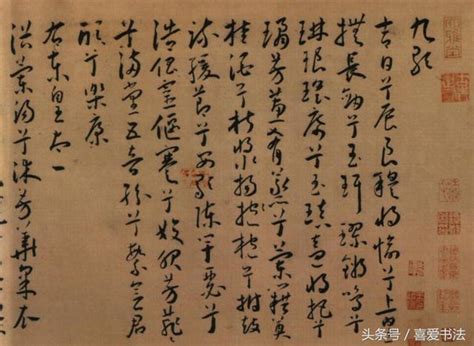 九歌
吉日兮辰良穆將愉兮上皇
撫長劍兮玉珥璆鏘鳴兮
琳琅瑤席兮玉瑱盍將把兮
瓊芳蕙肴蒸兮蘭藉奠
桂酒兮椒漿揚枹兮拊鼓
疏緩節兮安歌陳竽瑟兮
浩倡靈偃蹇兮姣服芳菲菲
兮滿堂五音紛兮繁會君
欣兮樂康
右東皇太一
浴蘭湯兮沐芳華采衣
头条号 / 喜爱书法